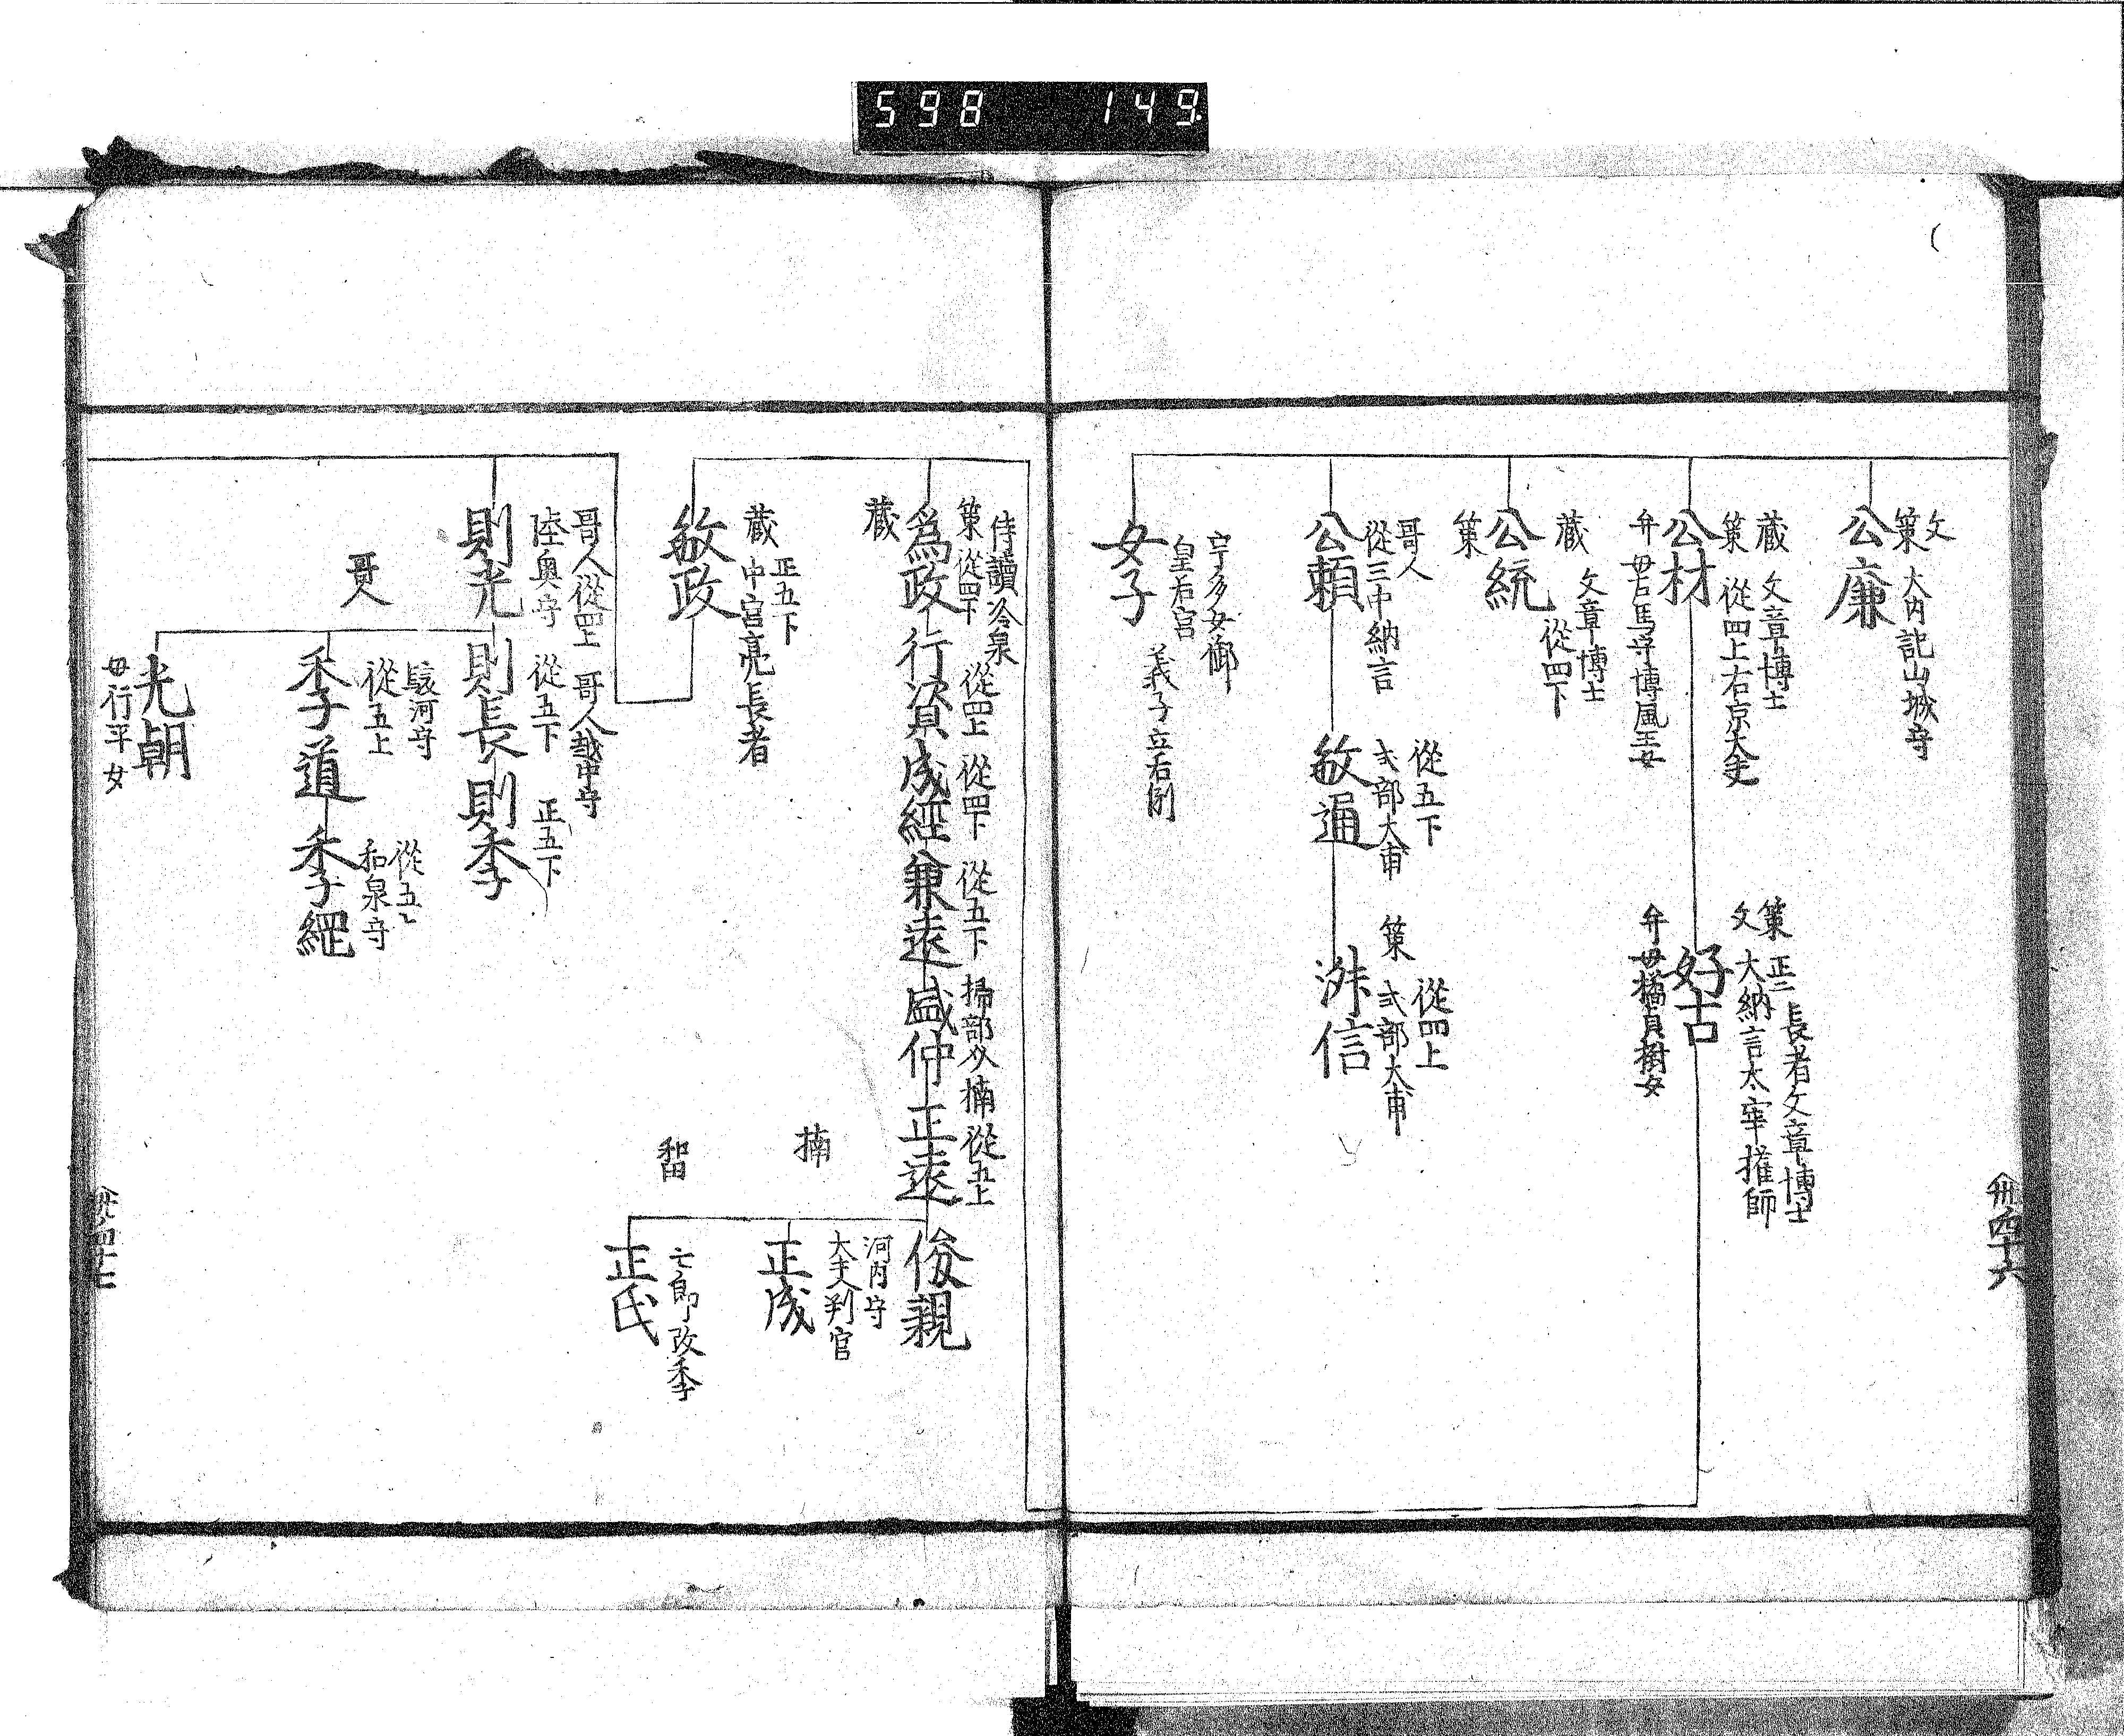 598 149
文
策
大内記山城守
公廉
蔵 文章博士
策 從四上右京大夫
公材
弁 母右馬守博風王女
策 正二 長者文章博士
文 大納言太宰権師
好古
弁 母橘貞樹女
蔵 文章博士
從四下
公統
策
哥人
從三中納言
公頼
從五下
式部大甫
敏通
策 從四上
式部大甫
洪信
宇多女御
皇后宮
義子立后例
女子
卅四十六
侍讀冷泉
策 從四下 從四上 從四下 從五下 掃部久 楠 從五上
為政 行資 成經 兼遠 盛仲 正遠 俊親
蔵
河内守
大夫判官
正成
楠
七郎改季
正氏
和田
正五下
蔵 中宮亮長者
敏政
哥人從四上 哥人越中守
陸奥守 從五下 正五下
則光 則長 則季
哥人
駿河守
從五上
季道
從五上
和泉守
季綱
光朝
母行平女
四十七